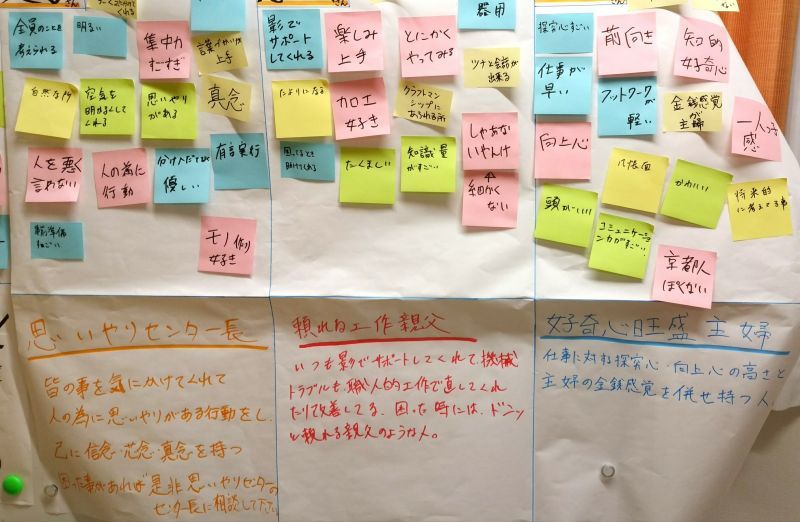 全員のことを
考えられる
明るい
集中力
すごぎ
上手
自然な
空気を
明るくして
くれる
思いやり
がある
真念
人を悪く
言わない
人の為に
行動
優しい
有言実行
モノ作り
好き
影で
サポート
してくれる
楽しみ
上手
とにかく
やってみる
器用
ツナと会話が
出来る
たよりになる
加工
好き
クラフトマン
シップに
あふれる所
しゃあない
いやんけ
困ってるとき
助けてくれる
たくましい
知識量
がすごい
細かく
ない
探究心すごい
前向き
知的
好奇心
仕事が
早い
フットワークが
軽い
金銭感覚
が
主婦
一人っ子
感
向上心
几帳面
かわいい
将来的
に考えてる事
頭がいい
コミュニケーショ
ン力がすごい
京都人
ぽくない
思いやりセンター長
皆の事を気にかけてくれて
人の為に思いやりがある行動をし、
己に信念・芯念・真念を持つ
困った事があれば是非思いやりセンターの
センター長に相談して下さい
頼れる工作親父
いつも影でサポートしてくれて、機械
トラブルも職人的工作で直してくれ
たり改善してる。困った時には、ドシッ
と頼れる親父のような人。
好奇心旺盛主婦
仕事に対する探究心・向上心の高さと
主婦の金銭感覚を併せ持つ人